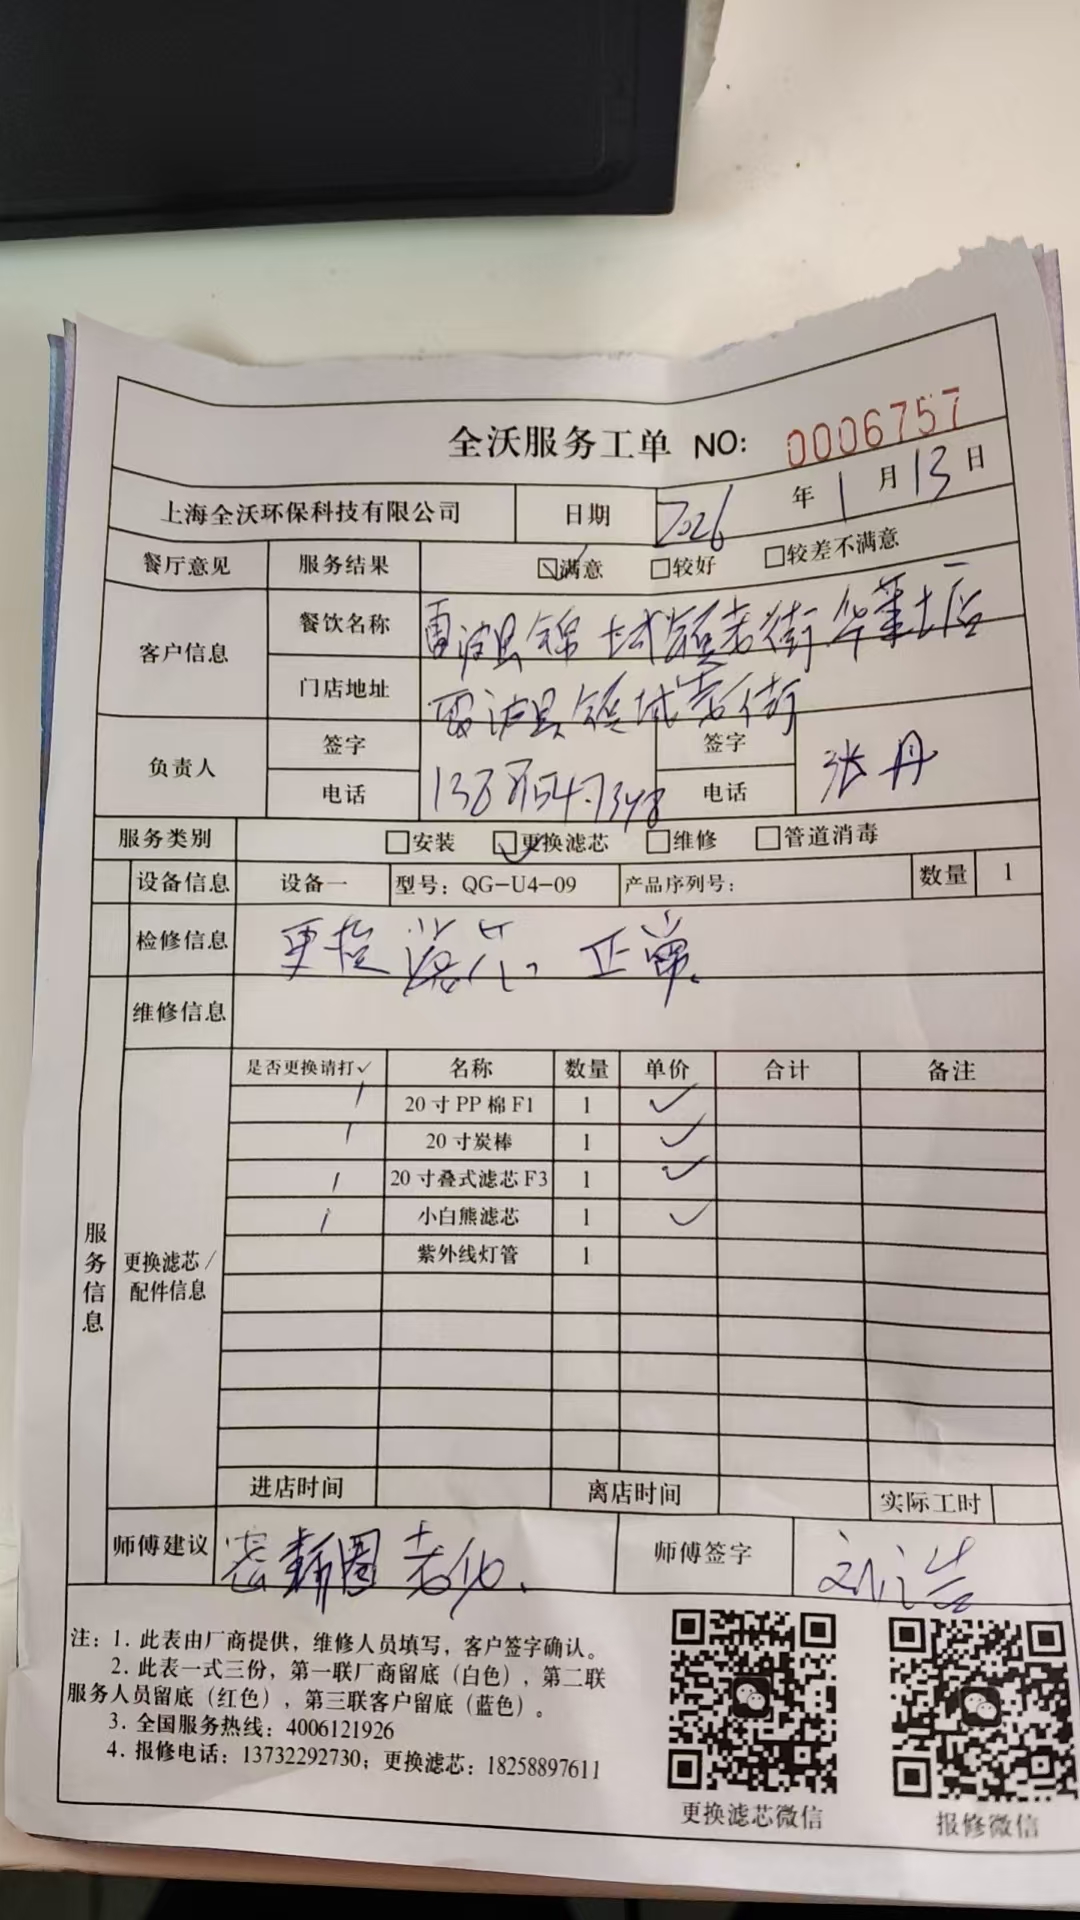 全沃服务工单 NO: 0006757
上海全沃环保科技有限公司 日期 2026 年 1 月 13 日
餐厅意见 服务结果 ☑满意 □较好 □较差不满意
客户信息 餐饮名称 雷波县锦城镇老街华莱士店
门店地址 雷波县锦城老街
负责人 签字 签字 张丹
电话 电话
服务类别 □安装 ☑更换滤芯 □维修 □管道消毒
设备信息 设备一 型号：QG-U4-09 产品序列号： 数量 1
检修信息 更换滤芯。正常。
维修信息
是否更换请打✓ 名称 数量 单价 合计 备注
20寸PP棉F1 1 ✓
20寸炭棒 1 ✓
20寸叠式滤芯F3 1 ✓
小白熊滤芯 1 ✓
紫外线灯管 1
服务信息
更换滤芯/
配件信息
进店时间 离店时间 实际工时
师傅建议 密封圈老化. 师傅签字 刘浩
注：1. 此表由厂商提供，维修人员填写，客户签字确认。
2. 此表一式三份，第一联厂商留底（白色），第二联
服务人员留底（红色），第三联客户留底（蓝色）。
3. 全国服务热线：4006121926
4. 报修电话：13732292730；更换滤芯：18258897611
更换滤芯微信 报修微信